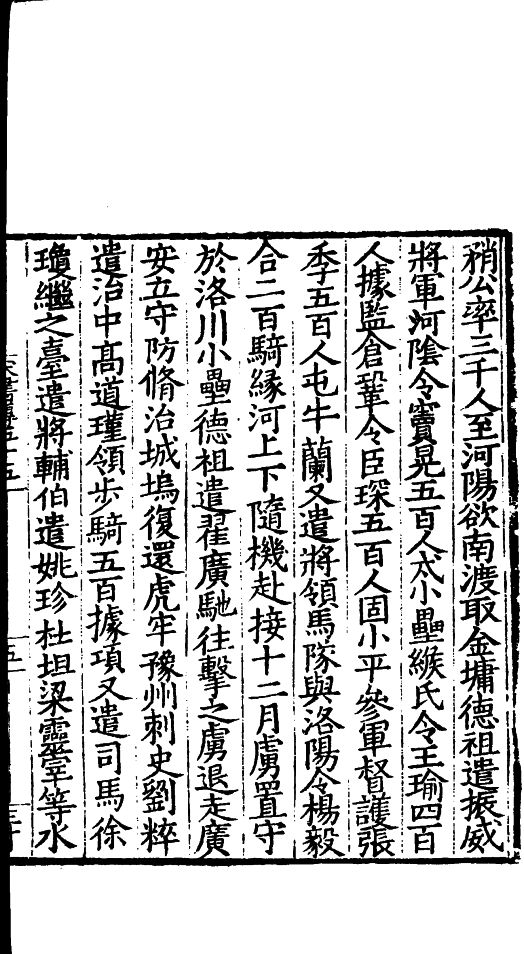 稍公率三千人至河陽欲南渡取金墉德祖遣振威
將軍河陰令竇晃五百人戍小壘緱氏令王瑜四百
人據監倉鞏令臣琛五百人固小平參軍督護張
季五百人屯牛蘭又遣將領馬隊與洛陽令楊毅
合二百騎緣河上下隨機赴接十二月虜置守
於洛川小壘德祖遣翟廣馳往擊之虜退走廣
安立守防脩治城塢復還虎牢豫州刺史劉粹
遣治中高道瑾領步騎五百據項又遣司馬徐
瓊繼之臺遣將輔伯遣姚珍杜坦梁靈宰等水